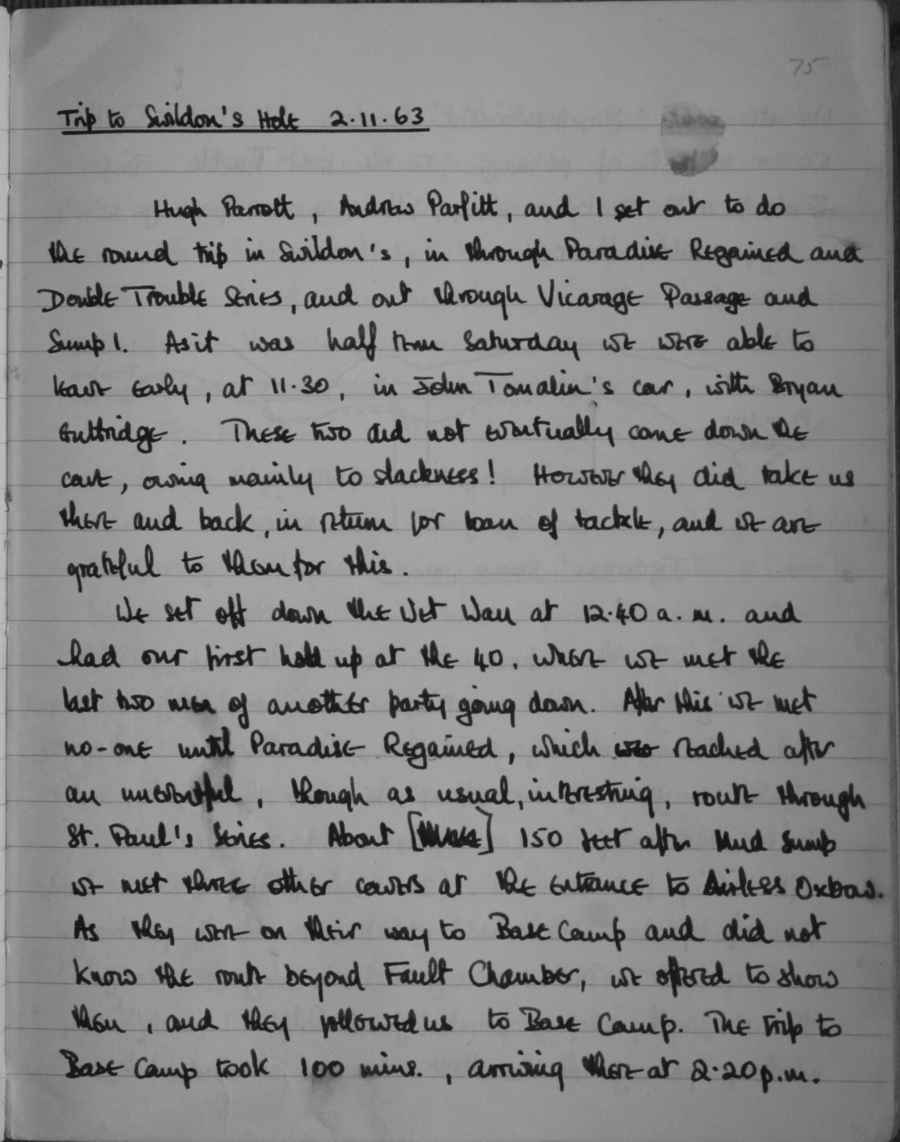 75
Trip to Swildon's Hole 2.11.63
Hugh Parrott, Andrew Parfitt, and I set out to do
the round trip in Swildon's, in through Paradise Regained and
Double Trouble Series, and out through Vicarage Passage and
Sump 1. As it was half term Saturday we were able to
leave early, at 11.30, in John Tomalin's car, with Bryan
Guttridge. These two did not eventually come down the
cave, owing mainly to slackness! However they did take us
there and back, in return for loan of tackle, and we are
grateful to them for this.
We set off down the Wet Way at 12.40 a.m. and
had our first hold up at the 40, where we met the
last two men of another party going down. After this we met
no-one until Paradise Regained, which was reached after
an uneventful, though as usual, interesting, route through
St. Paul's Series. About [] 150 feet after Mud Sump
we met three other cavers at the entrance to Airless Oxbow.
As they were on their way to Base Camp and did not
know the route beyond Fault Chamber, we offered to show
them, and they followed us to Base Camp. The trip to
Base Camp took 100 mins., arriving there at 2.20 p.m.